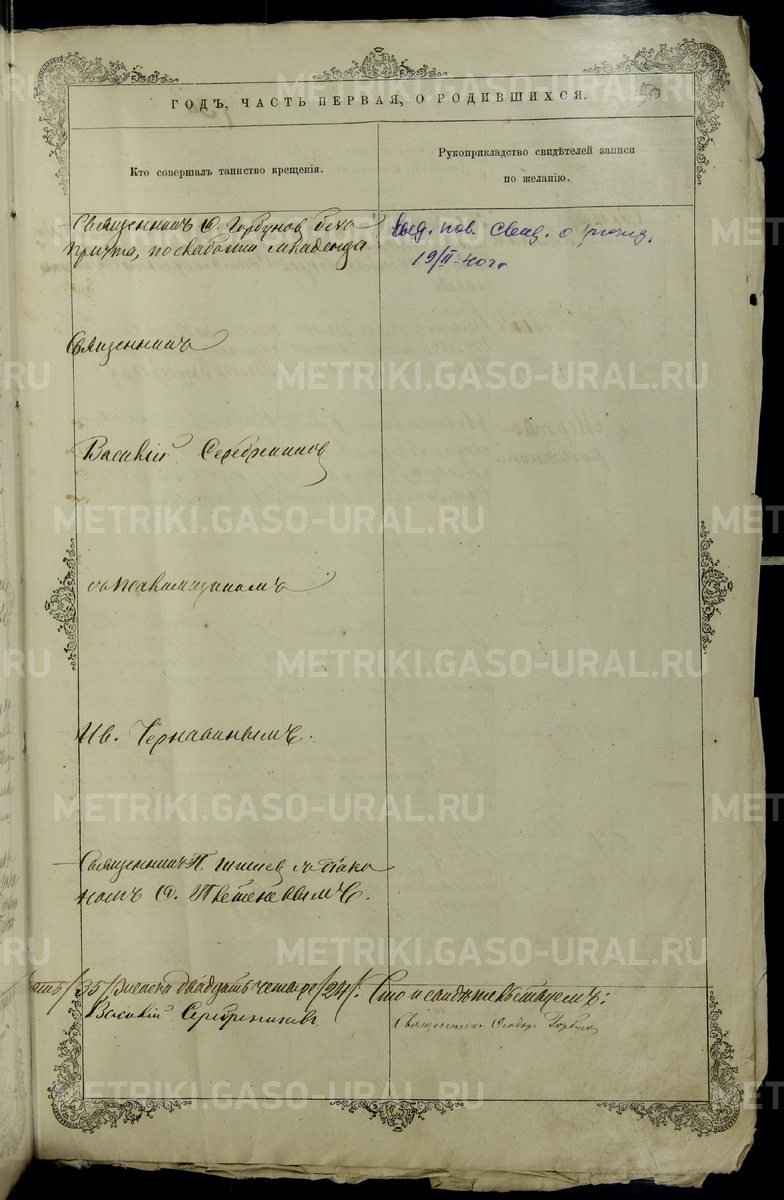 ГОДЪ, ЧАСТЬ ПЕРВАЯ, О РОДИВШИХСЯ.
50
Кто совершалъ таинство крещенія.
Рукоприкладство свидѣтелей записи
по желанію.
Священникъ Ѳ. Горбунов безъ
причта, по слабости младенца
пов. свид. о рожд.
19/II-40 г.
Священникъ
Василій Серебренников
съ псаломщикомъ
Ив. Чернавинымъ.
Священникъ П. Шишев съ діако
номъ Ѳ.
/35/ женска двадцать четыре /24/. Сто и свидѣтельствуемъ:
Василій Серебренниковъ
Священникъ Ѳеодоръ Горбунов
METRIKI.GASO-URAL.RU